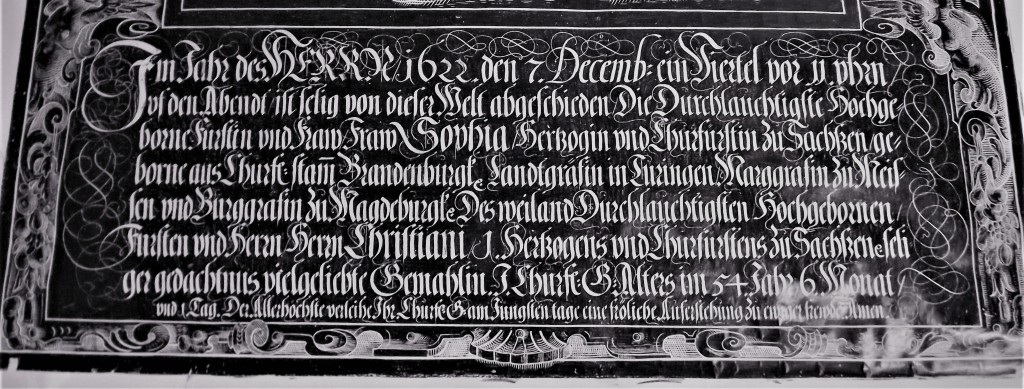 Im Jahr des HERRN 1622 den 7 Decemb: ein Viertel vor 11 vhrn
vf den Abendt ist selig von dieser Welt abgeschieden Die Durchlauchtigste Hochge
borne Fürstin vnd Fraw Fraw Sophia Hertzogin vnd Churfürstin Zu Sachßen ge-
borne aus Churf: stam̅ Brandenburgk, Landtgräfin in Türingen Marggräfin Zu Meis-
sen vnd Burggräfin Zu Magdeburgk, Des weiland Durchlauchtigsten Hochgebornen
Fürsten vnd Herrn Herrn Christiani 1. Hertzogens vnd Churfürstens Zu Sachßen seli
ger gedächtnus vielgeliebte Gemahlin. I. Churf. G. Alters im 54 Jahr 6 Monat
vnd 1 Tag. Der Allerhöchste verleihe Ihr. Churf. G. am Jungsten tage eine fröliche Aufferstehung Zu ewiger freude Amen.